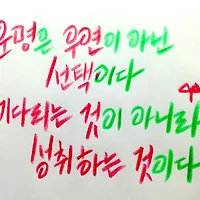 운명은 우연이 아닌
선택이다
기다리는 것이 아니라
성취하는 것이다